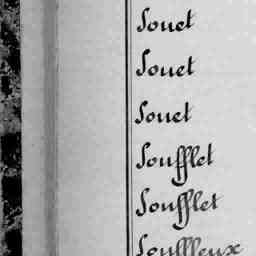 Souet
Souet
Souet
Soufflet
Soufflet
Souffleux